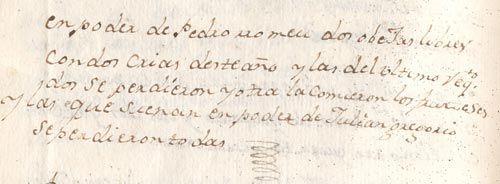 en poder de Pedro rromeu dos obejas libres
Con dos Crias desteaño y las del ultimo
dos se perdieron y otra la comieron los
y las que suenan en poder de Julian gregorio
se perdieron todas